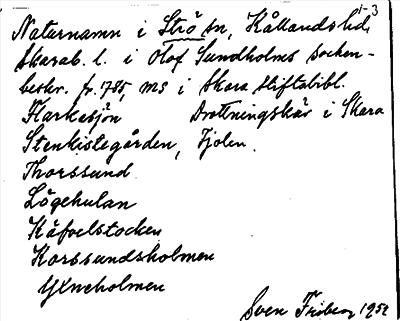 1-3
Naturnamn i Strö sn, Kållands hd,
Skarab. l. i Olof Sundholms socken-
beskr. fr. 1785, ms i Skara Stiftsbibl.
Harkesjön Drottningskär i Skara
Stenkistegården, Fjolen.
Thorssund
Lögehulan
Käfvelstocken
Korssundsholmen
Yxneholmen
Sven Friberg 1952